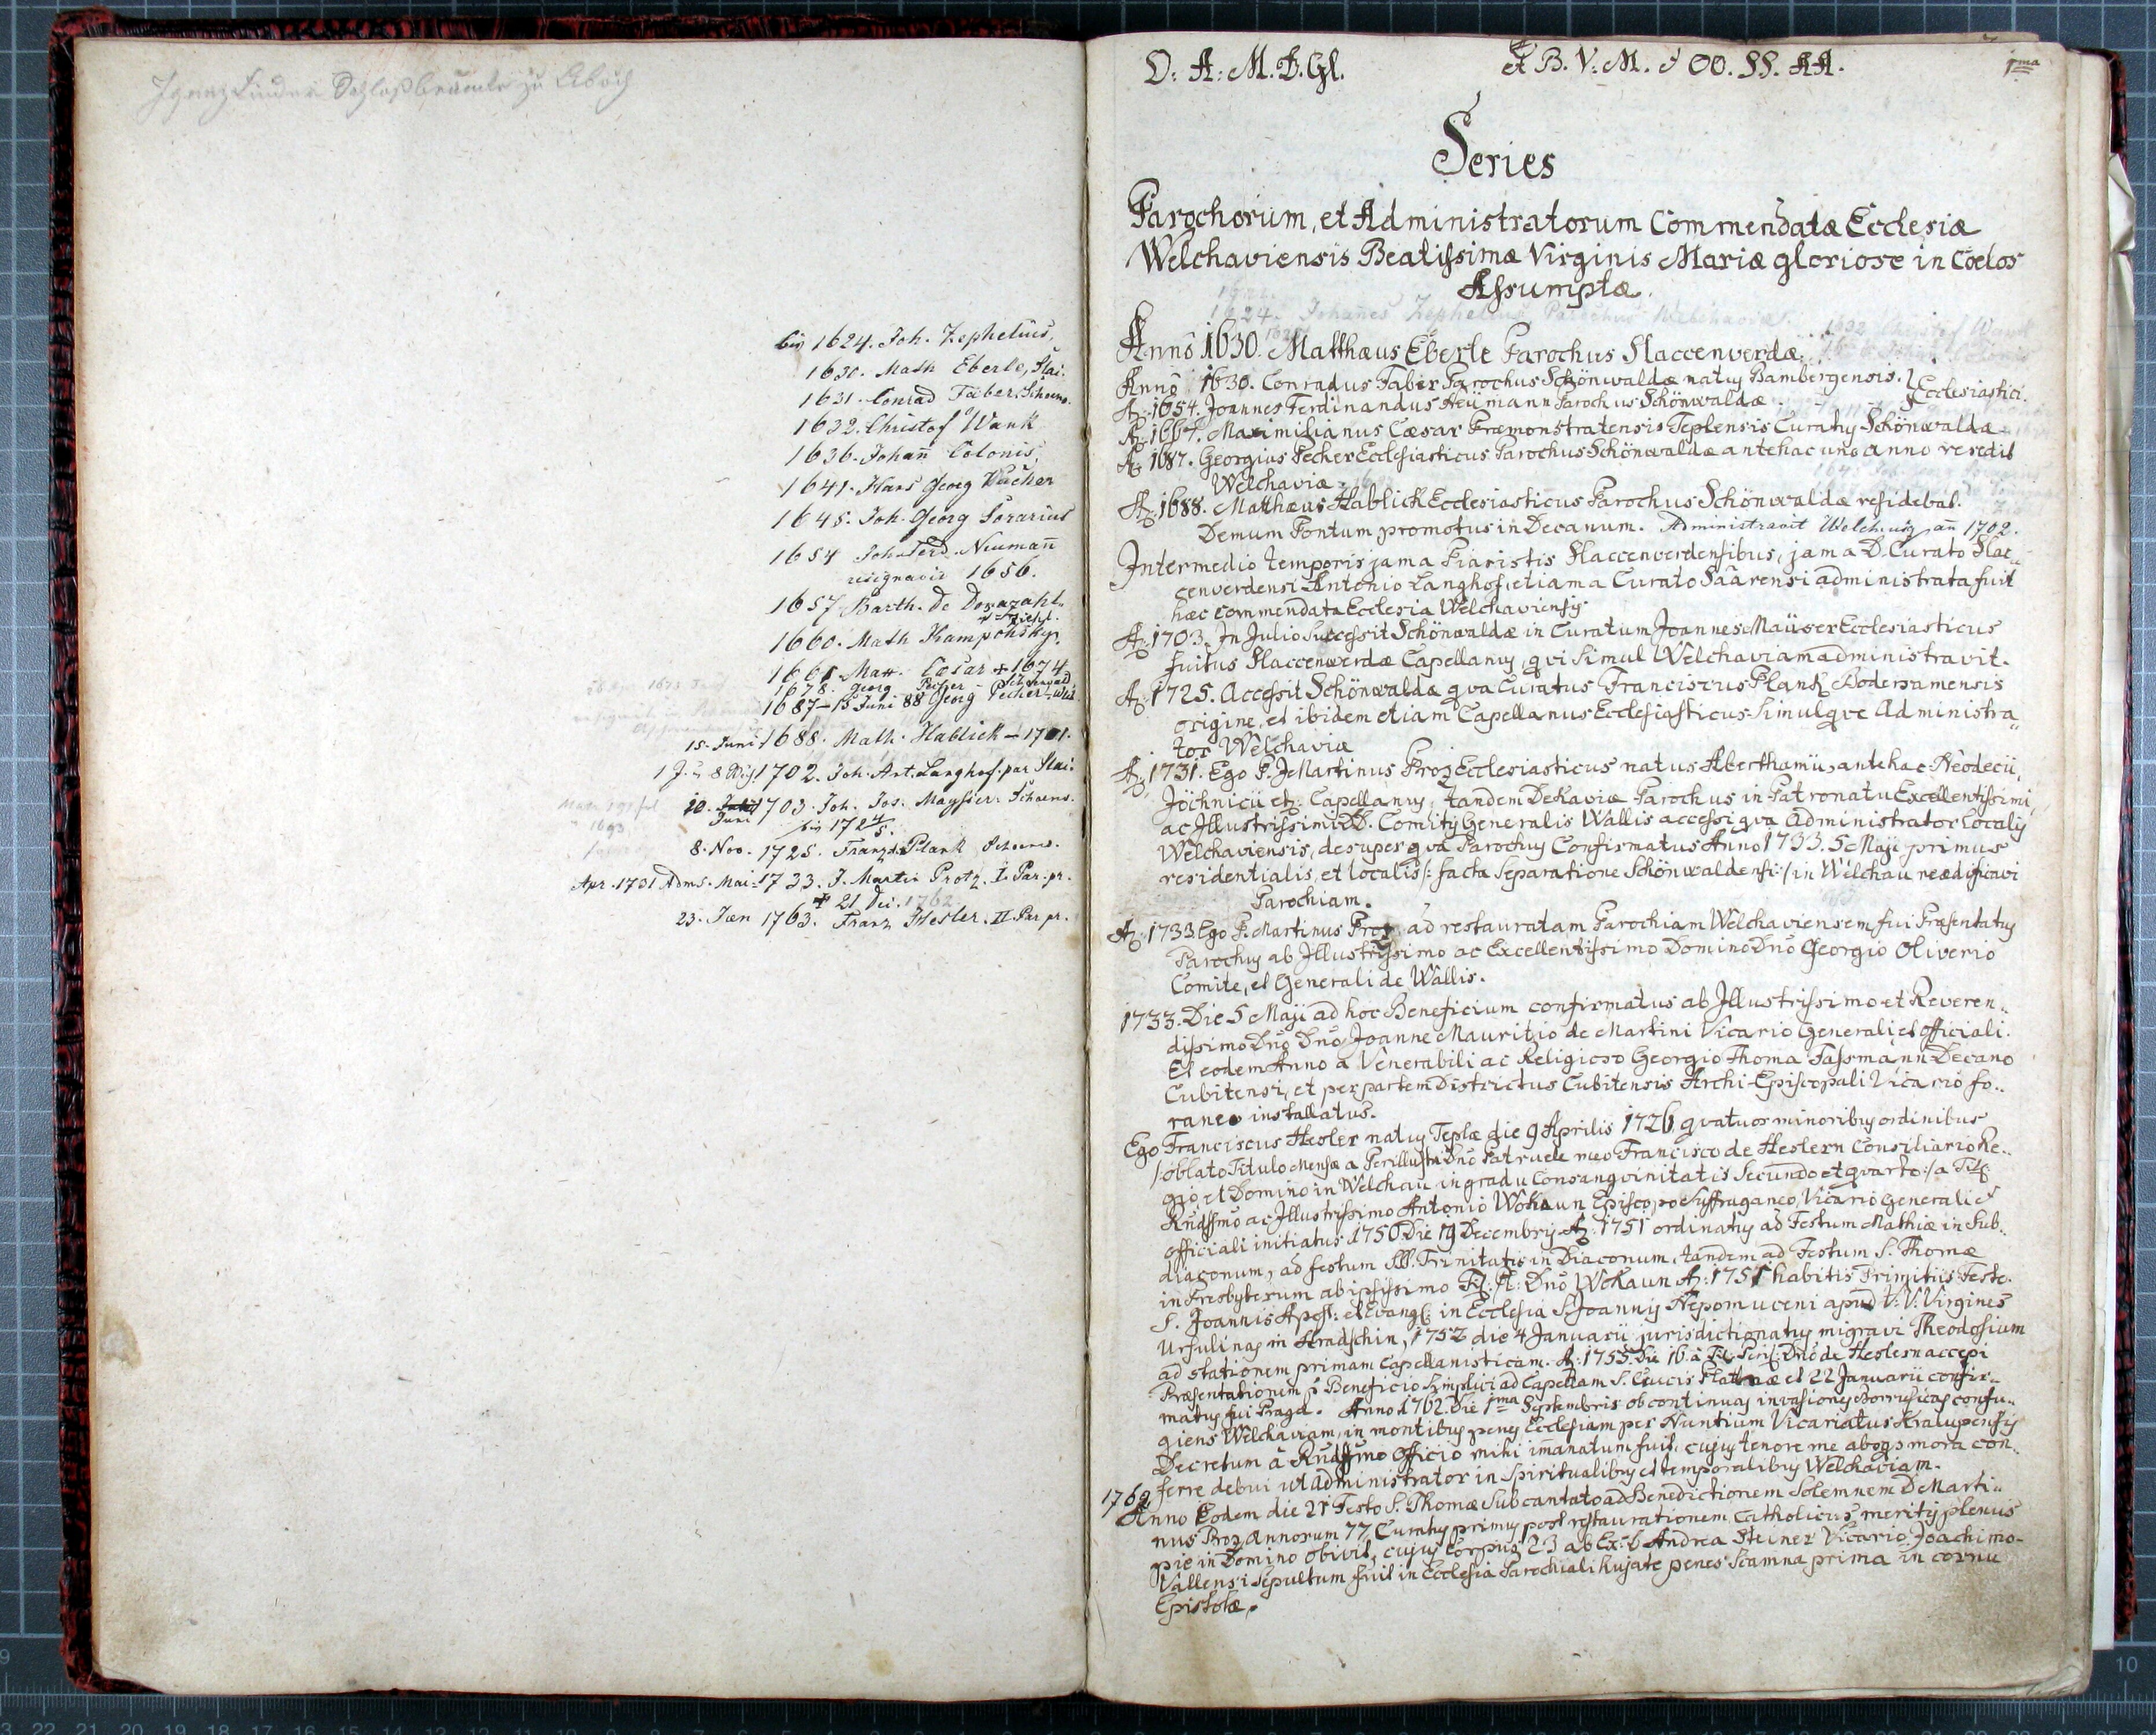 Ignaz Linder Schloßbeamte zu
bis 1624. Joh. Zephelius,
1630. Math Eberle, Slac.
1631. Conrad Faber, Schoenw.
1632. Christof Wank
1636. Johañ Colonis,
1641. Hans Georg Wücher
1645. Joh. Georg Sorarius
1654 Joh. Ferd. Neumañ
resignavit 1656.
1657 Barth. de
1660. Math
1661 Max. Cæsar + 1674
1678. Georg
1687–15 Juni 88 Georg Pecher
15. Juni 1688. Math. Hablick – 1701.
1702. Joh. Ant. Langhof. par Slac.
10. Juni 1703. Joh. Jos. Maysser. Schoenw.
bis 172 4/5.
8. Nov. 1725. Franz Plank Schoenw.
Apr. 1731 Adms. Mai 1733. J. Martin Protz. I. Par. pr.
+ 21 Dec. 1762
23. Jæn 1763. Franz Hesler. II Par pr.
O: A: M. D. Gl. et B. V: M. & OO. SS. AA. 1ma
Series
Parochorum, et Administratorum Commendatæ Ecclesiæ
Welchaviensis Beatissimæ Virginis Mariæ gloriose in Coelos
Assumptæ.
1624. Johannes Zephelius Parochus Welchaviæ.
Anno 1630. Matthæus Eberle Parochus Slaccenverdæ.
Anno 1630. Conradus Faber Parochus Schönwaldæ natus Bambergensis. } Ecclesiastici.
Aõ: 1654. Joannes Ferdinandus Neümann Parochus Schönwaldæ.
Aõ: 1664. Maximilianus Cæsar Præmonstratensis Teplensis Curatus Schönwaldæ
Aõ: 1687. Georgius Pecher Ecclesiasticus Parochus Schönwaldæ antehac uno anno resedit
Welchaviæ.
Aõ: 1688. Matthæus Hablick Ecclesiasticus Parochus Schönwaldæ residebat.
Demum Pontum promotus in Decanum. Administravit Welch. usq. an 1702.
Intermedio temporis jam a Piaristis Slaccenverdensibus, jam a D. Curato Slac„
cenverdensi Antonio Langhof, etiam a Curato Säarensi administrata fuit
hæc commendata Ecclesia Welchaviensis
Aõ: 1703. In Julio Successit Schönwaldæ in Curatum Joannes Maüser Ecclesiasticus
Slaccenwerdæ Capellanus, qvi simul Welchaviam administravit.
Aõ: 1725. Accessit Schönwaldæ qva Curatus Franciscus Plank Bodersamensis
origine, et ibidem etiam Capellanus Ecclesiasticus simulqve Administra„
tor Welchaviæ
Aõ: 1731. Ego P. J Martinus Proz Ecclesiasticus natus Aberthamii, antehac Neodecii,
Jöchnicii etc: Capellanus, tandem Dekaviæ Parochus in Patronatu Excellentissimi,
ac Illustrissimi DD. Comitis Generalis Wallis accessi qva Administrator Localis
Welchaviensis, desuper qva Parochus Confirmatus Anno 1733. 5 Maji primus
residentialis, et localis /: facta Separatione Schönwaldensi :/ in Welchau reædificavi
Parochiam.
Aõ: 1733 Ego P. Martinus Proz ad restauratam Parochiam Welchaviensem fui Præsentatus
Parochus ab Illustrissimo ac Excellentissimo Domino Dno Georgio Oliverio
Comite, et Generali de Wallis.
1733. Die 5 Maji ad hoc Beneficium confirmatus ab Illustrissimo et Reveren„
dissimo Dno Dno Joanne Mauritio de Martini Vicario Generali et officiali.
Et eodem Anno a Venerabili ac Religioso Georgio Thoma Tassmann Decano
Cubitensi, et per partem Districtus Cubitensis Archi-Episcopali Vicario fo„
raneo installatus.
Ego Franciscus Hesler natus Teplæ die 9 Aprilis 1726 qvatuor minoribus ordinibus
/: oblato Titulo Mensæ a Perillustri Dno Patruele meo Francisco de Heslern Consiliario Re„
gio, et Domino in Welchau in gradu Consangvinitatis Secundo et qvarto :/ a Tit:
Rndssmo ac Illustrissimo Antonio Wokaun Episcopo Suffraganeo, Vicario Generali et
officiali initiatus 1750 Die 19 Decembris Aõ: 1751 ordinatus ad Festum Mathiæ in Sub„
diaconum, ad festum SSS. Trinitatis in Diaconum, tandem ad Festum S. Thomæ
in Presbyterum ab ipsissimo Tit: Pl: Dno Wokaun Aõ: 1751 habitis Primitiis Festo
S. Joannis Apost: et Evang: in Ecclesia S. Joannis Nepomuceni apud V: V: Virgines
Ursulinas in Hradschin, 1752 die 4 Januarii jurisdictionatus migravi Theodosium
ad stationem primam Capellanisticam. Aõ: 1755 Die 16. a Tit: Perill: Dno de Heslern accepi
Præsentationem p Beneficio Simplici ad Capellam S. Crucis Plattnæ et 22 Januarii confir„
matus fui Pragæ. Anno 1762 Die 1ma Septembris ob continuas invasiones Borrusicas confu„
giens Welchaviam, in montibus penes Ecclesiam per Nuntium Vicariatus Kralupensis
Decretum à Rndssmo Officio mihi im̃anatum fuit, cujus tenore me absqs mora con„
ferre debui ut administrator in Spiritualibus et temporalibus Welchaviam.
1762 Anno Eodem die 21 Festo S. Thomæ Sub cantato ad Benedictionem Solemnem D Marti„
nus Proz Annorum 77 Curatus primus post restaurationem Catholicus meritis plenus
pie in Domino obivit, cujus Corpus 23 ab Ex: D Andrea Steiner Vicario Joachimo-
Vallensi Sepultum fuit in Ecclesia Parochiali hujate penes Scamna prima in cornu
Epistolæ.